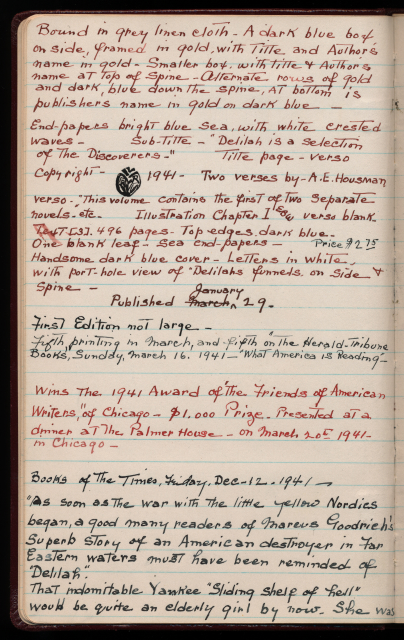 Bound in grey linen cloth - A dark blue box,
on side, framed in gold, with Title and Author's
name in gold - Smaller box, with title & Author's
name at top of spine - Alternate rows of gold
and dark, blue down the spine, at bottom is
publishers name in gold on dark blue -
End-papers bright blue sea, with white crested
waves - Sub-Title - "Delilah is a selection
of The Discoverers-" Title page - verso
Copyright - 1941 - Two verses by - A.E. Housman
verso - "This volume contains the first of Two separate
novels - etc. Illustration Chapter I verso blank.
Text - 496 pages - Top edges dark blue -
One blank leaf - Sea end papers - Price $2.75
Handsome dark blue cover - Letters in white,
with port-hole view of "Delilahs funnels on side &
Spine -
January
Published March 29.
First Edition not large -
Fifth printing in March, and fifth "on the Herald-Tribune
Books, Sunday, March 16. 1941 - "What America is Reading"-
Wins The 1941 Award of The Friends of American
Writers," of Chicago - $1.000 Prize. Presented at a
dinner at The Palmer House - on March 20th 1941 -
in Chicago -
Books of The Times, Friday, Dec-12-1941 -
"As soon as the war with the little yellow Nordics
began, a good many readers of Marcus Goodrich's
Superb story of an American destroyer in Far
Eastern waters must have been reminded of
"Delilah".
That indomitable Yankee "Sliding shelf of hell"
would be quite an elderly girl by now. She was